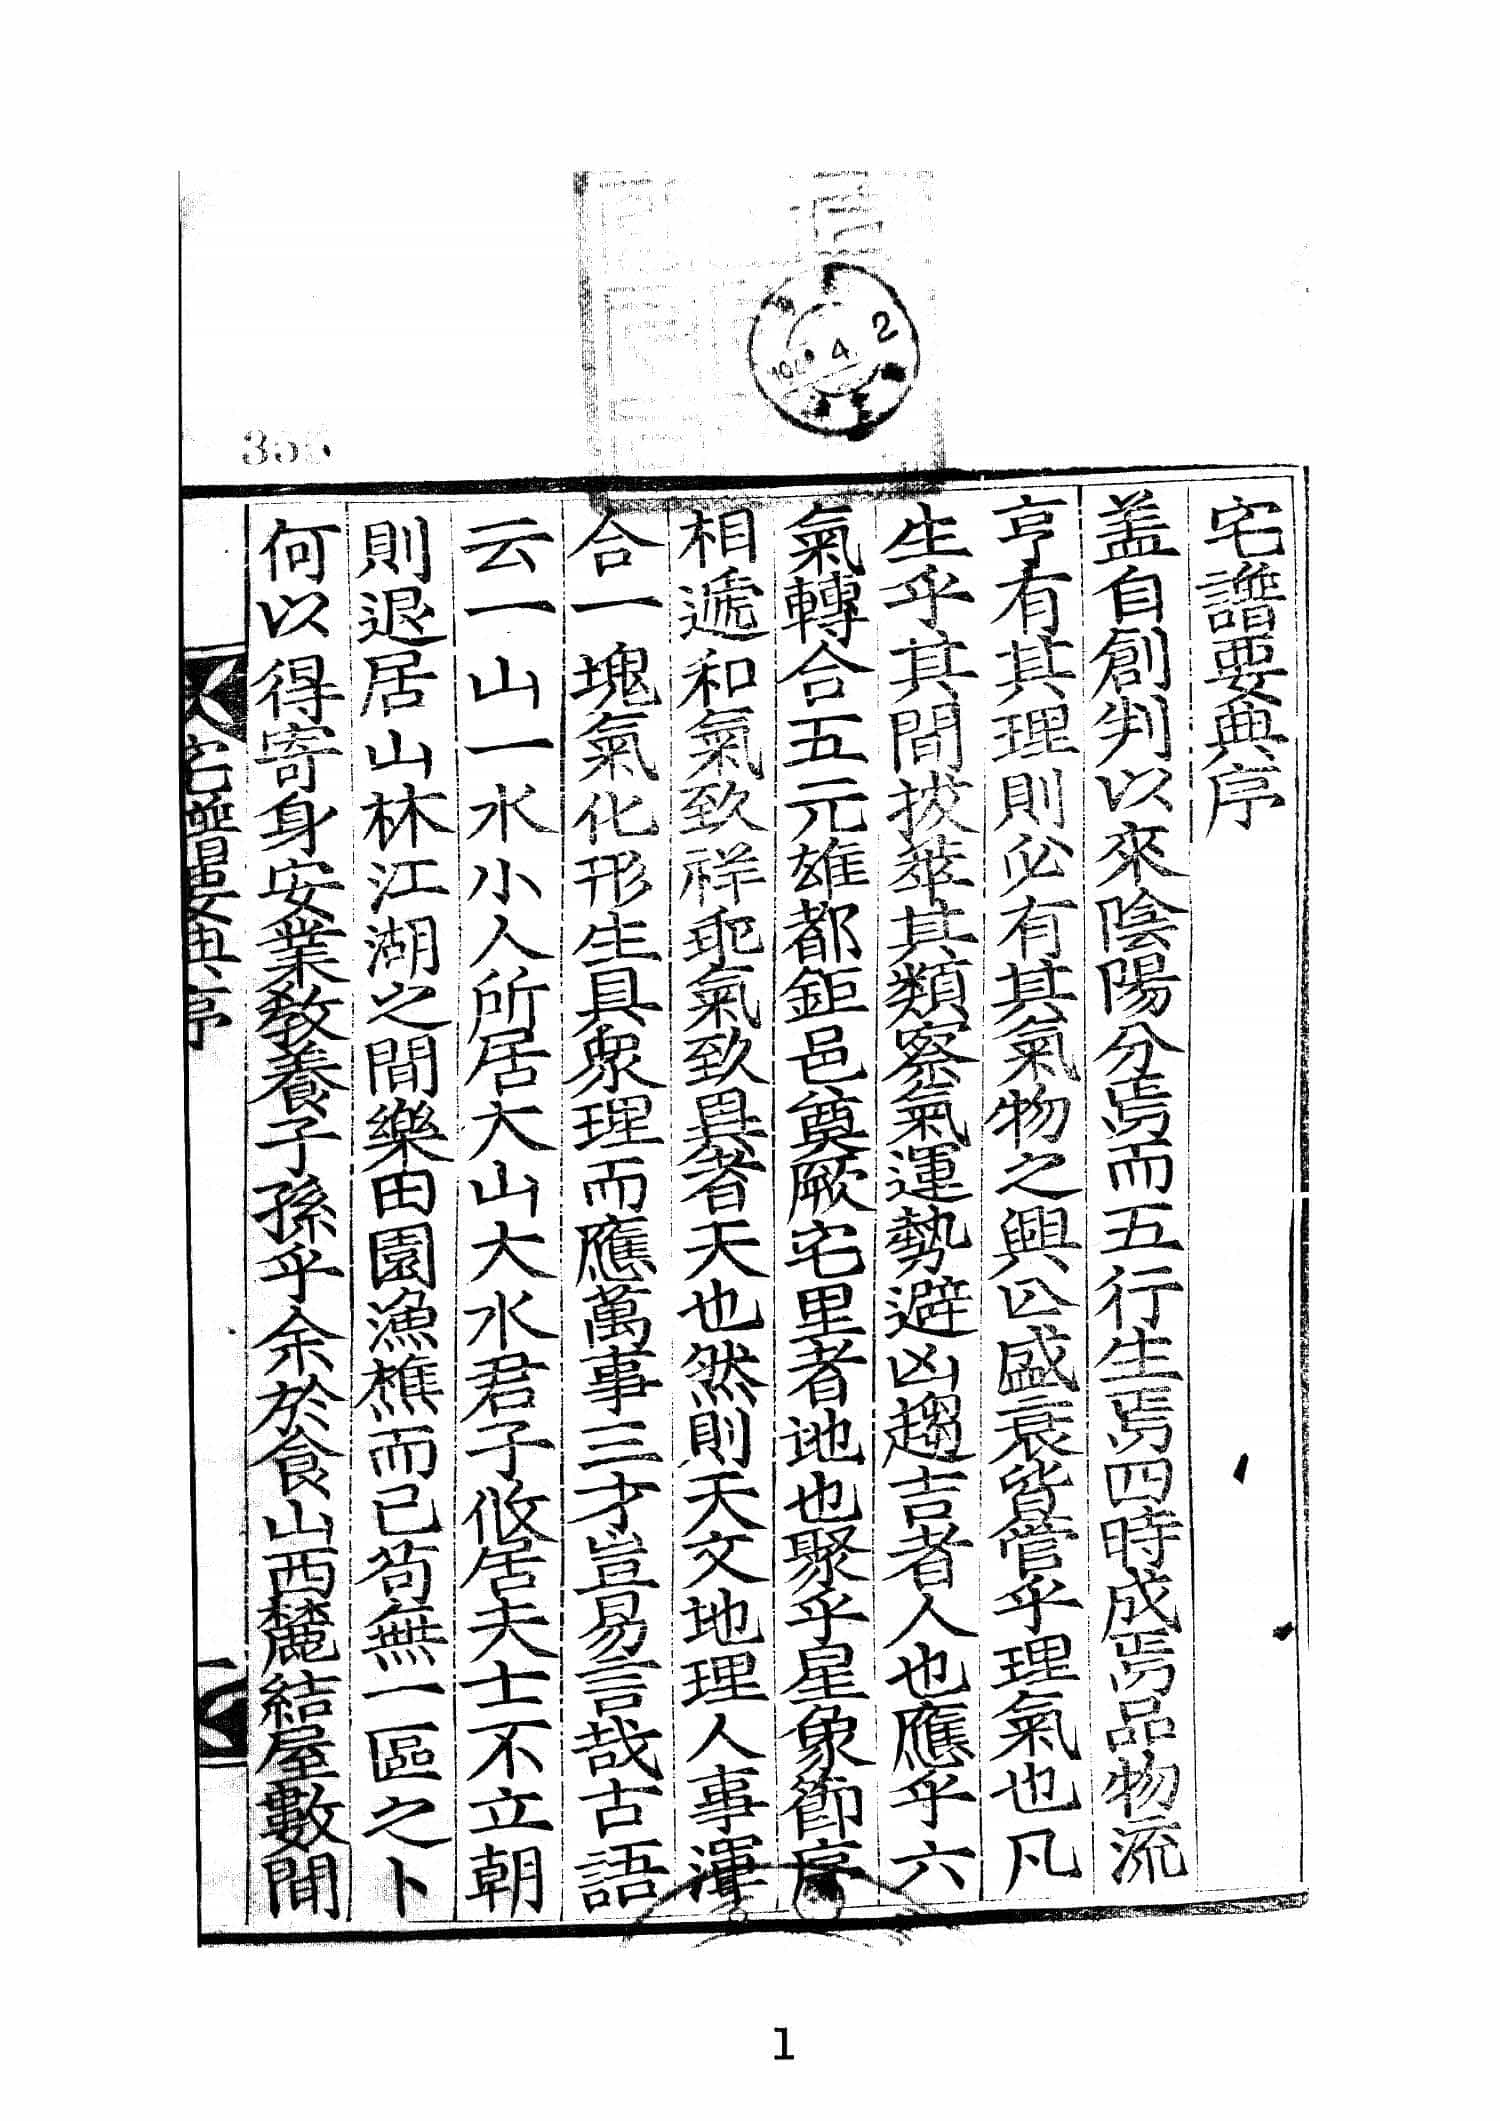 宅譜要典序
盖自創判以來陰陽分焉而五行生焉四時成焉品物流
亨有其理則必有其氣物之興亾盛衰皆管乎理氣也凡
生乎其間拔萃其類察氣運勢避凶趨吉者人也應乎六
氣轉合五元雄都鉅邑奠厥宅里者地也聚乎星象節序
相遞和氣致祥乖氣致異者天也然則天文地理人事渾
合一塊氣化形生具衆理而應萬事三才豈易言哉古語
云一山一水小人所居大山大水君子攸居夫士不立朝
則退居山林江湖之間樂田園漁樵而已苟無一區之卜
何以得寄身安業敎養子孫乎余於食山西麓結屋數間
宅譜要典序
4 2
1